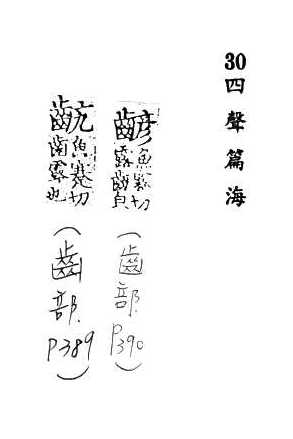 30四聲篇海
齴魚蹇切
露齒皃
(齒部.P390)
魚蹇切
齒露也
(齒部.P389)